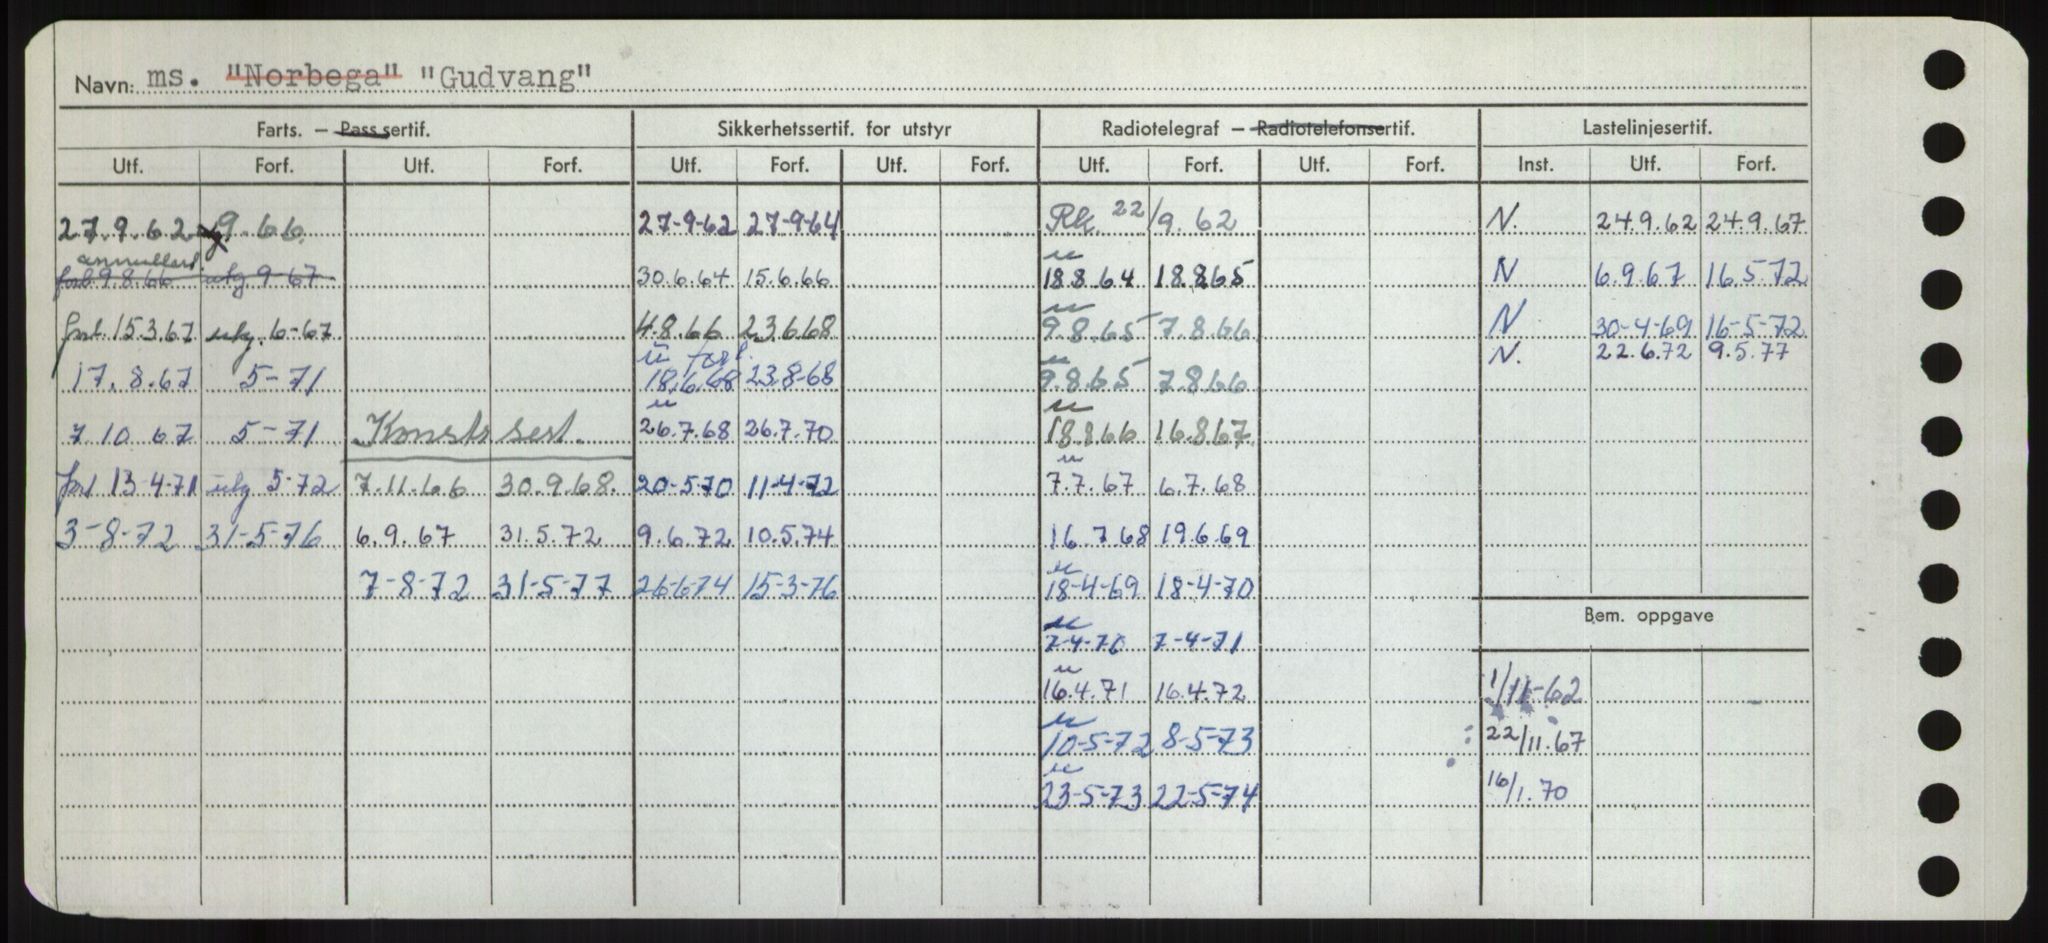 Navn: ms. "Norbega" "Gudvang"
Farts. — Pass sertif. Sikkerhetssertif. for utstyr Radiotelegraf — Radiotelefonsertif. Lastelinjesertif.
Utf. Forf. Utf. Forf. Utf. Forf. Utf. Forf. Utf. Forf. Utf. Forf. Inst. Utf. Forf.
27.9.62 9.66 27-9-62 27-9-64 22/9.62 N. 24.9.62 24.9.67
annullert.
forl 9.8.66 utg 9 67 30.6.64 15.6.66 18.8.64 18.8.65 N 6.9.67 16.5.72
forl. 15.3.67 utg. 6-67 4.8.66 23.6.68 9.8.65 7.8.66 N 30-4-69 16-5-72
u forl. N. 22.6.72 9.5.77
17.8.67 5-71 18.6.68 23.8-68 9.8.65 7.8.66
7.10.67 5-71 Konstr sert. 26.7.68 26.7.70 18.8.66 16.8.67
forl 13-4-71 utg 5-72 7.11.66 30.9.68. 20-5-70 11-4-72 7.7.67 6.7.68
3-8-72 31-5-76 6.9.67 31.5.72 9.6.72 10.5.74 16.7.68 19.6.69
7-8-72 31-5-77 26-6-74 15-3-76 18-4-69 18-4-70
Bem. oppgave
7-4-70 7-4-71
16.4.71 16.4.72 1/11-62
10-5-72 8-5-73 22/11.67
23-5-73 22-5-74 16/1.70